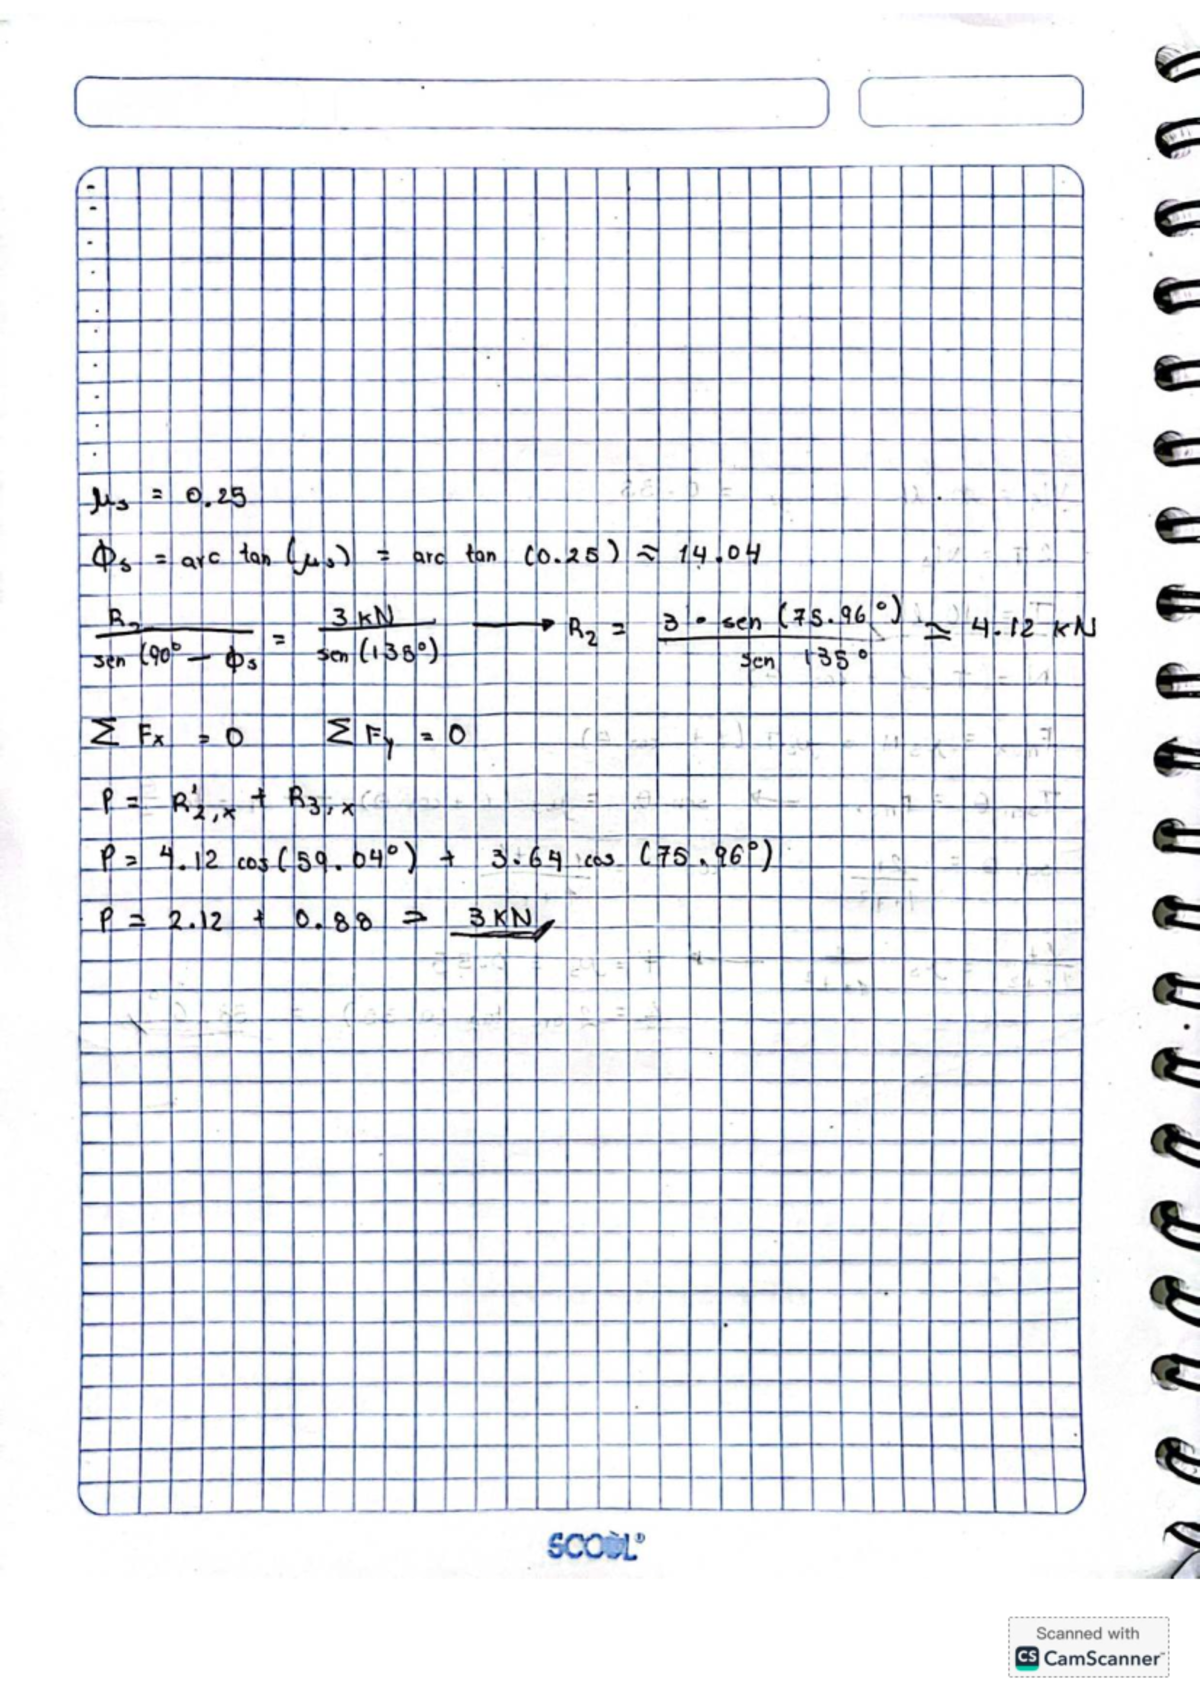 μs = 0.25
Φs = arc tan (μs) = arc tan (0.25) ≈ 14.04
R2 / sen (90° - Φs = 3 kN / sen (135°) → R2 = 3 · sen (75.96°) / sen 135° ≃ 4.12 kN
Σ Fx = 0 Σ Fy = 0
P = R'2,x + R3,x
P = 4.12 cos (59.04°) + 3.64 cos (75.96°)
P = 2.12 + 0.88 = 3 KN
SCOOL
Scanned with
CS CamScanner